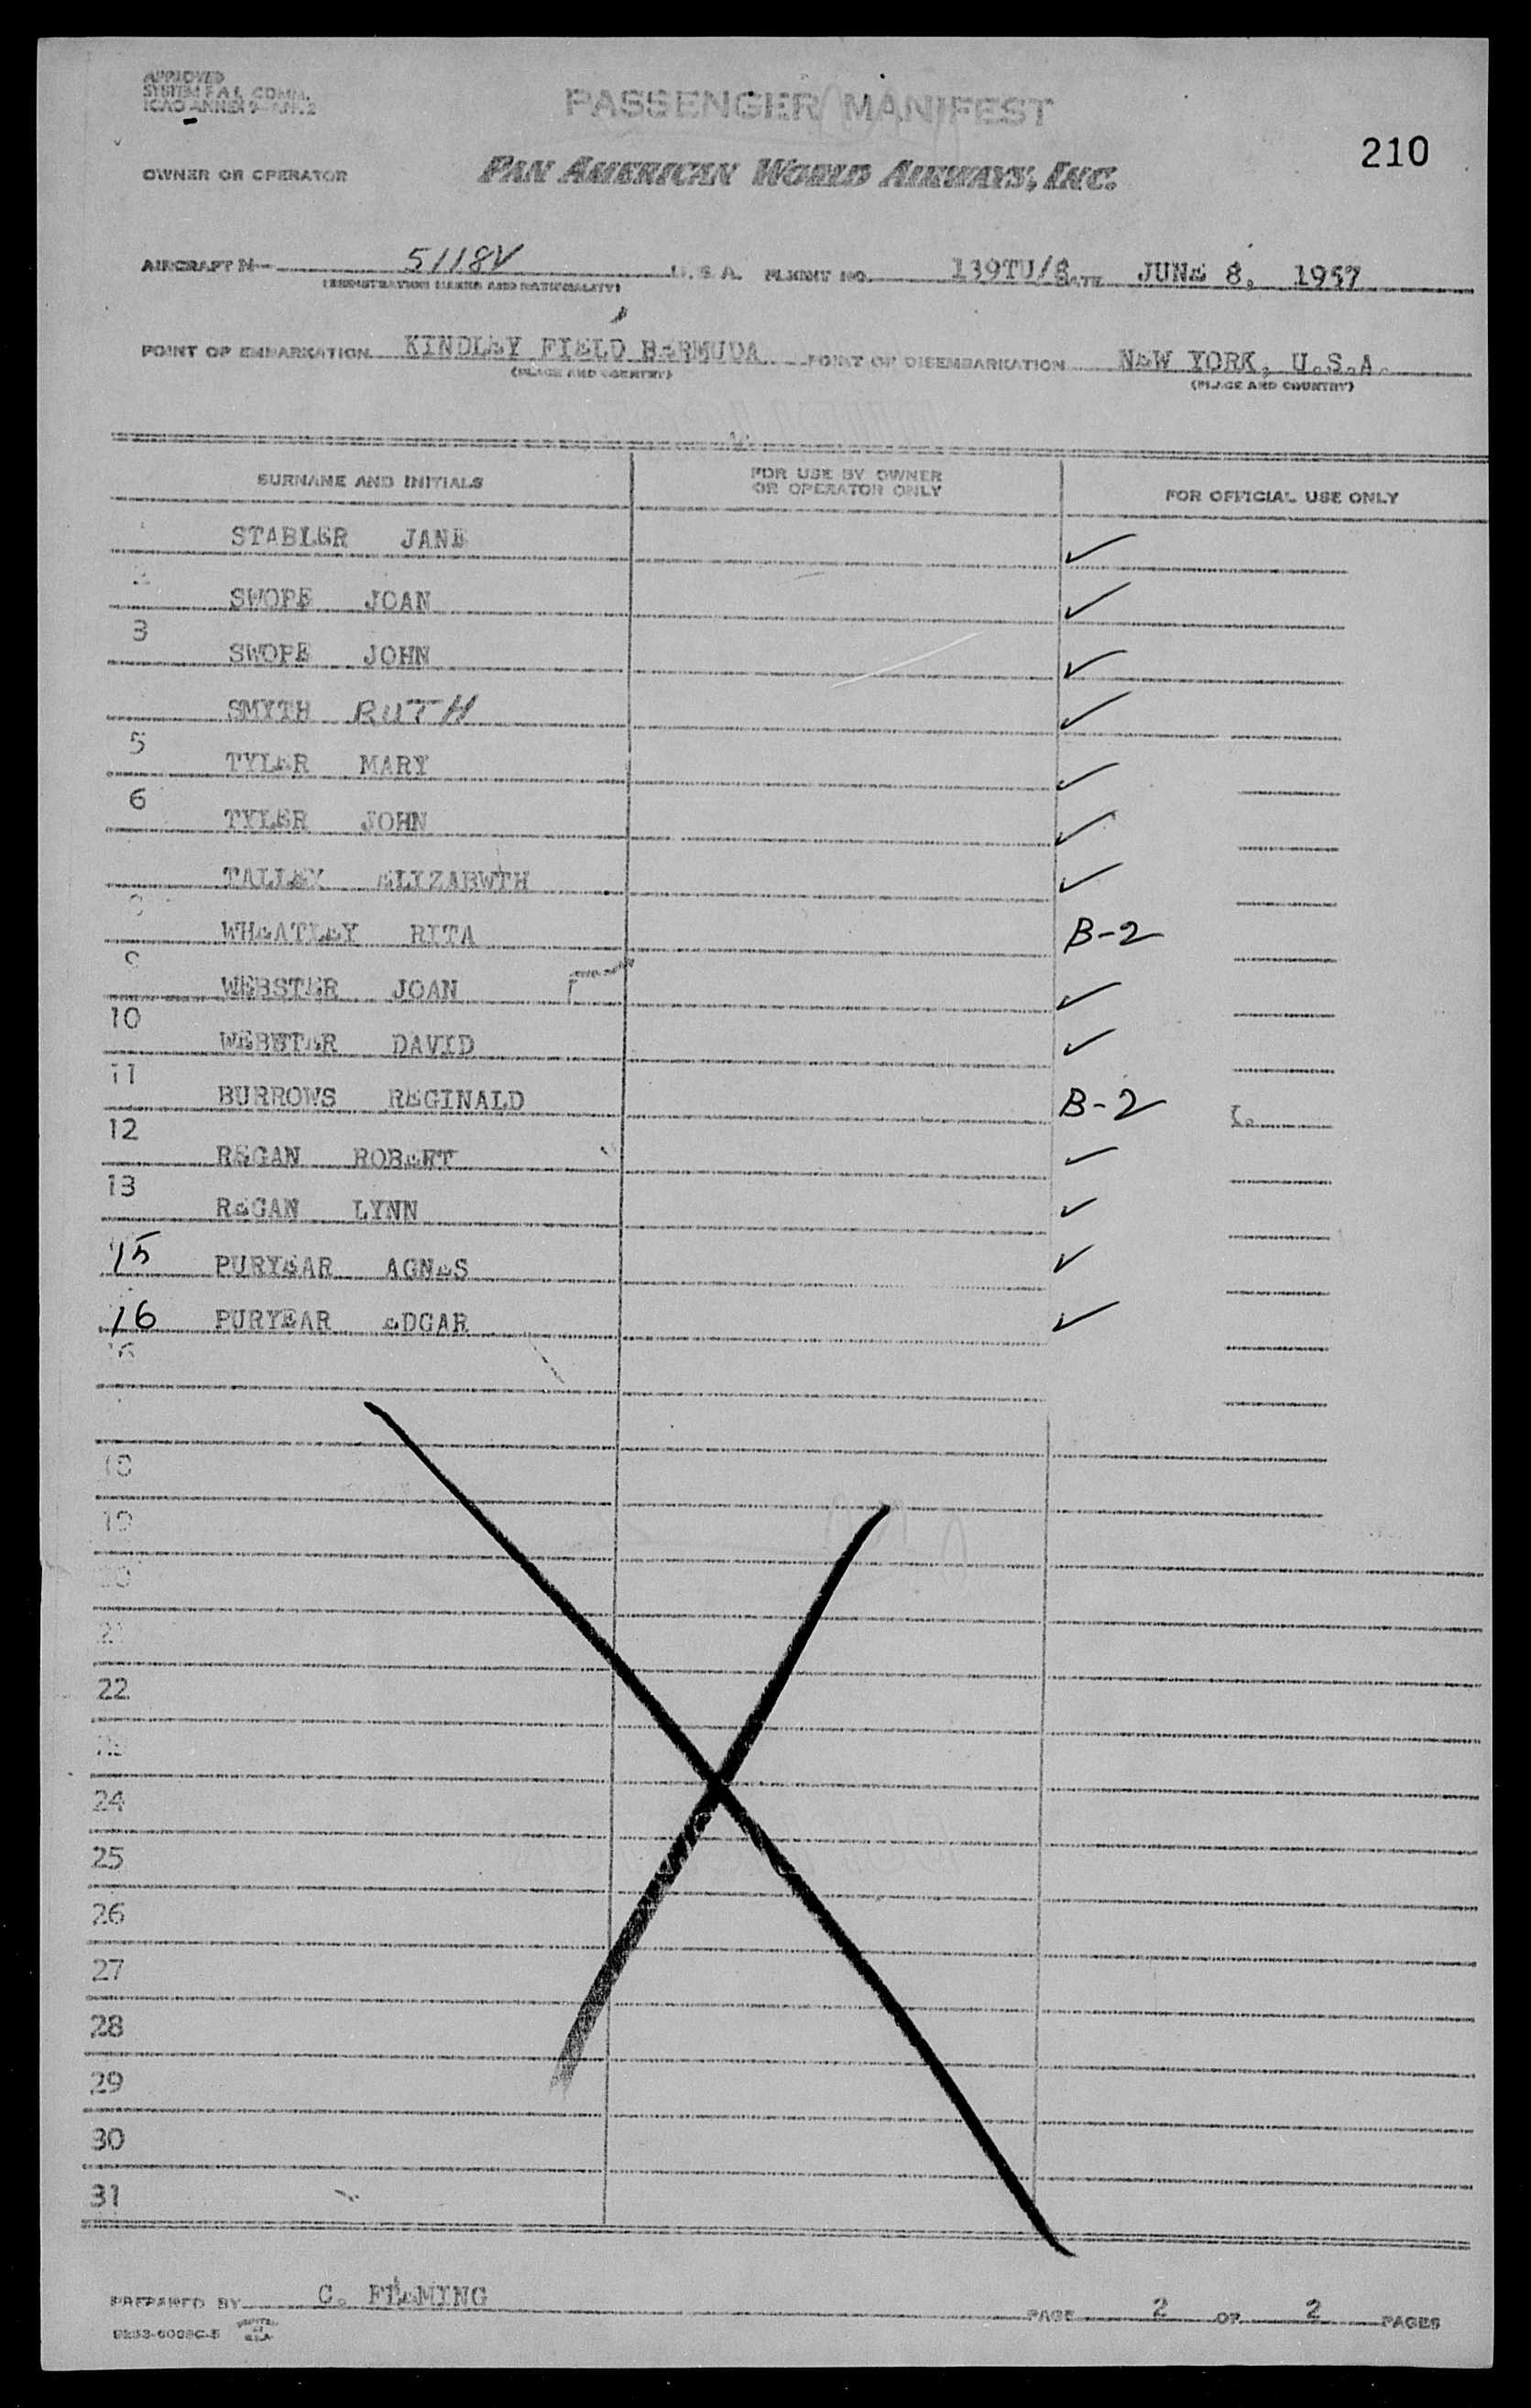 APPROVED
SYSTEM F.A.L. COMM.
ICAO ANNEX 9-APP. 2
PASSENGER MANIFEST
210
OWNER OR OPERATOR PAN AMERICAN WORLD AIRWAYS, INC.
AIRCRAFT N- 5118V U.S.A. FLIGHT NO. 139TU/8 DATE JUNE 8, 1957
(REGISTRATION MARKS AND NATIONALITY)
POINT OF EMBARKATION KINDLEY FIELD BERMUDA POINT OF DISEMBARKATION NEW YORK, U.S.A.
(PLACE AND COUNTRY) (PLACE AND COUNTRY)
SURNAME AND INITIALS FOR USE BY OWNER OR OPERATOR ONLY FOR OFFICIAL USE ONLY
STABLER JANE ✓
SWOPE JOAN ✓
3 SWOPE JOHN ✓
SMYTH RUTH ✓
5 TYLER MARY ✓
6 TYLER JOHN ✓
TALLEY ELIZABWTH ✓
WHEATLEY RITA B-2
9 WEBSTER JOAN ✓
10 WEBSTER DAVID ✓
11 BURROWS REGINALD B-2
12 REGAN ROBERT ✓
13 REGAN LYNN ✓
15 PURYEAR AGNES ✓
16 PURYEAR EDGAR ✓
16
18
19
20
21
22
23
24
25
26
27
28
29
30
31
PREPARED BY C. FLEMING PAGE 2 OF 2 PAGES